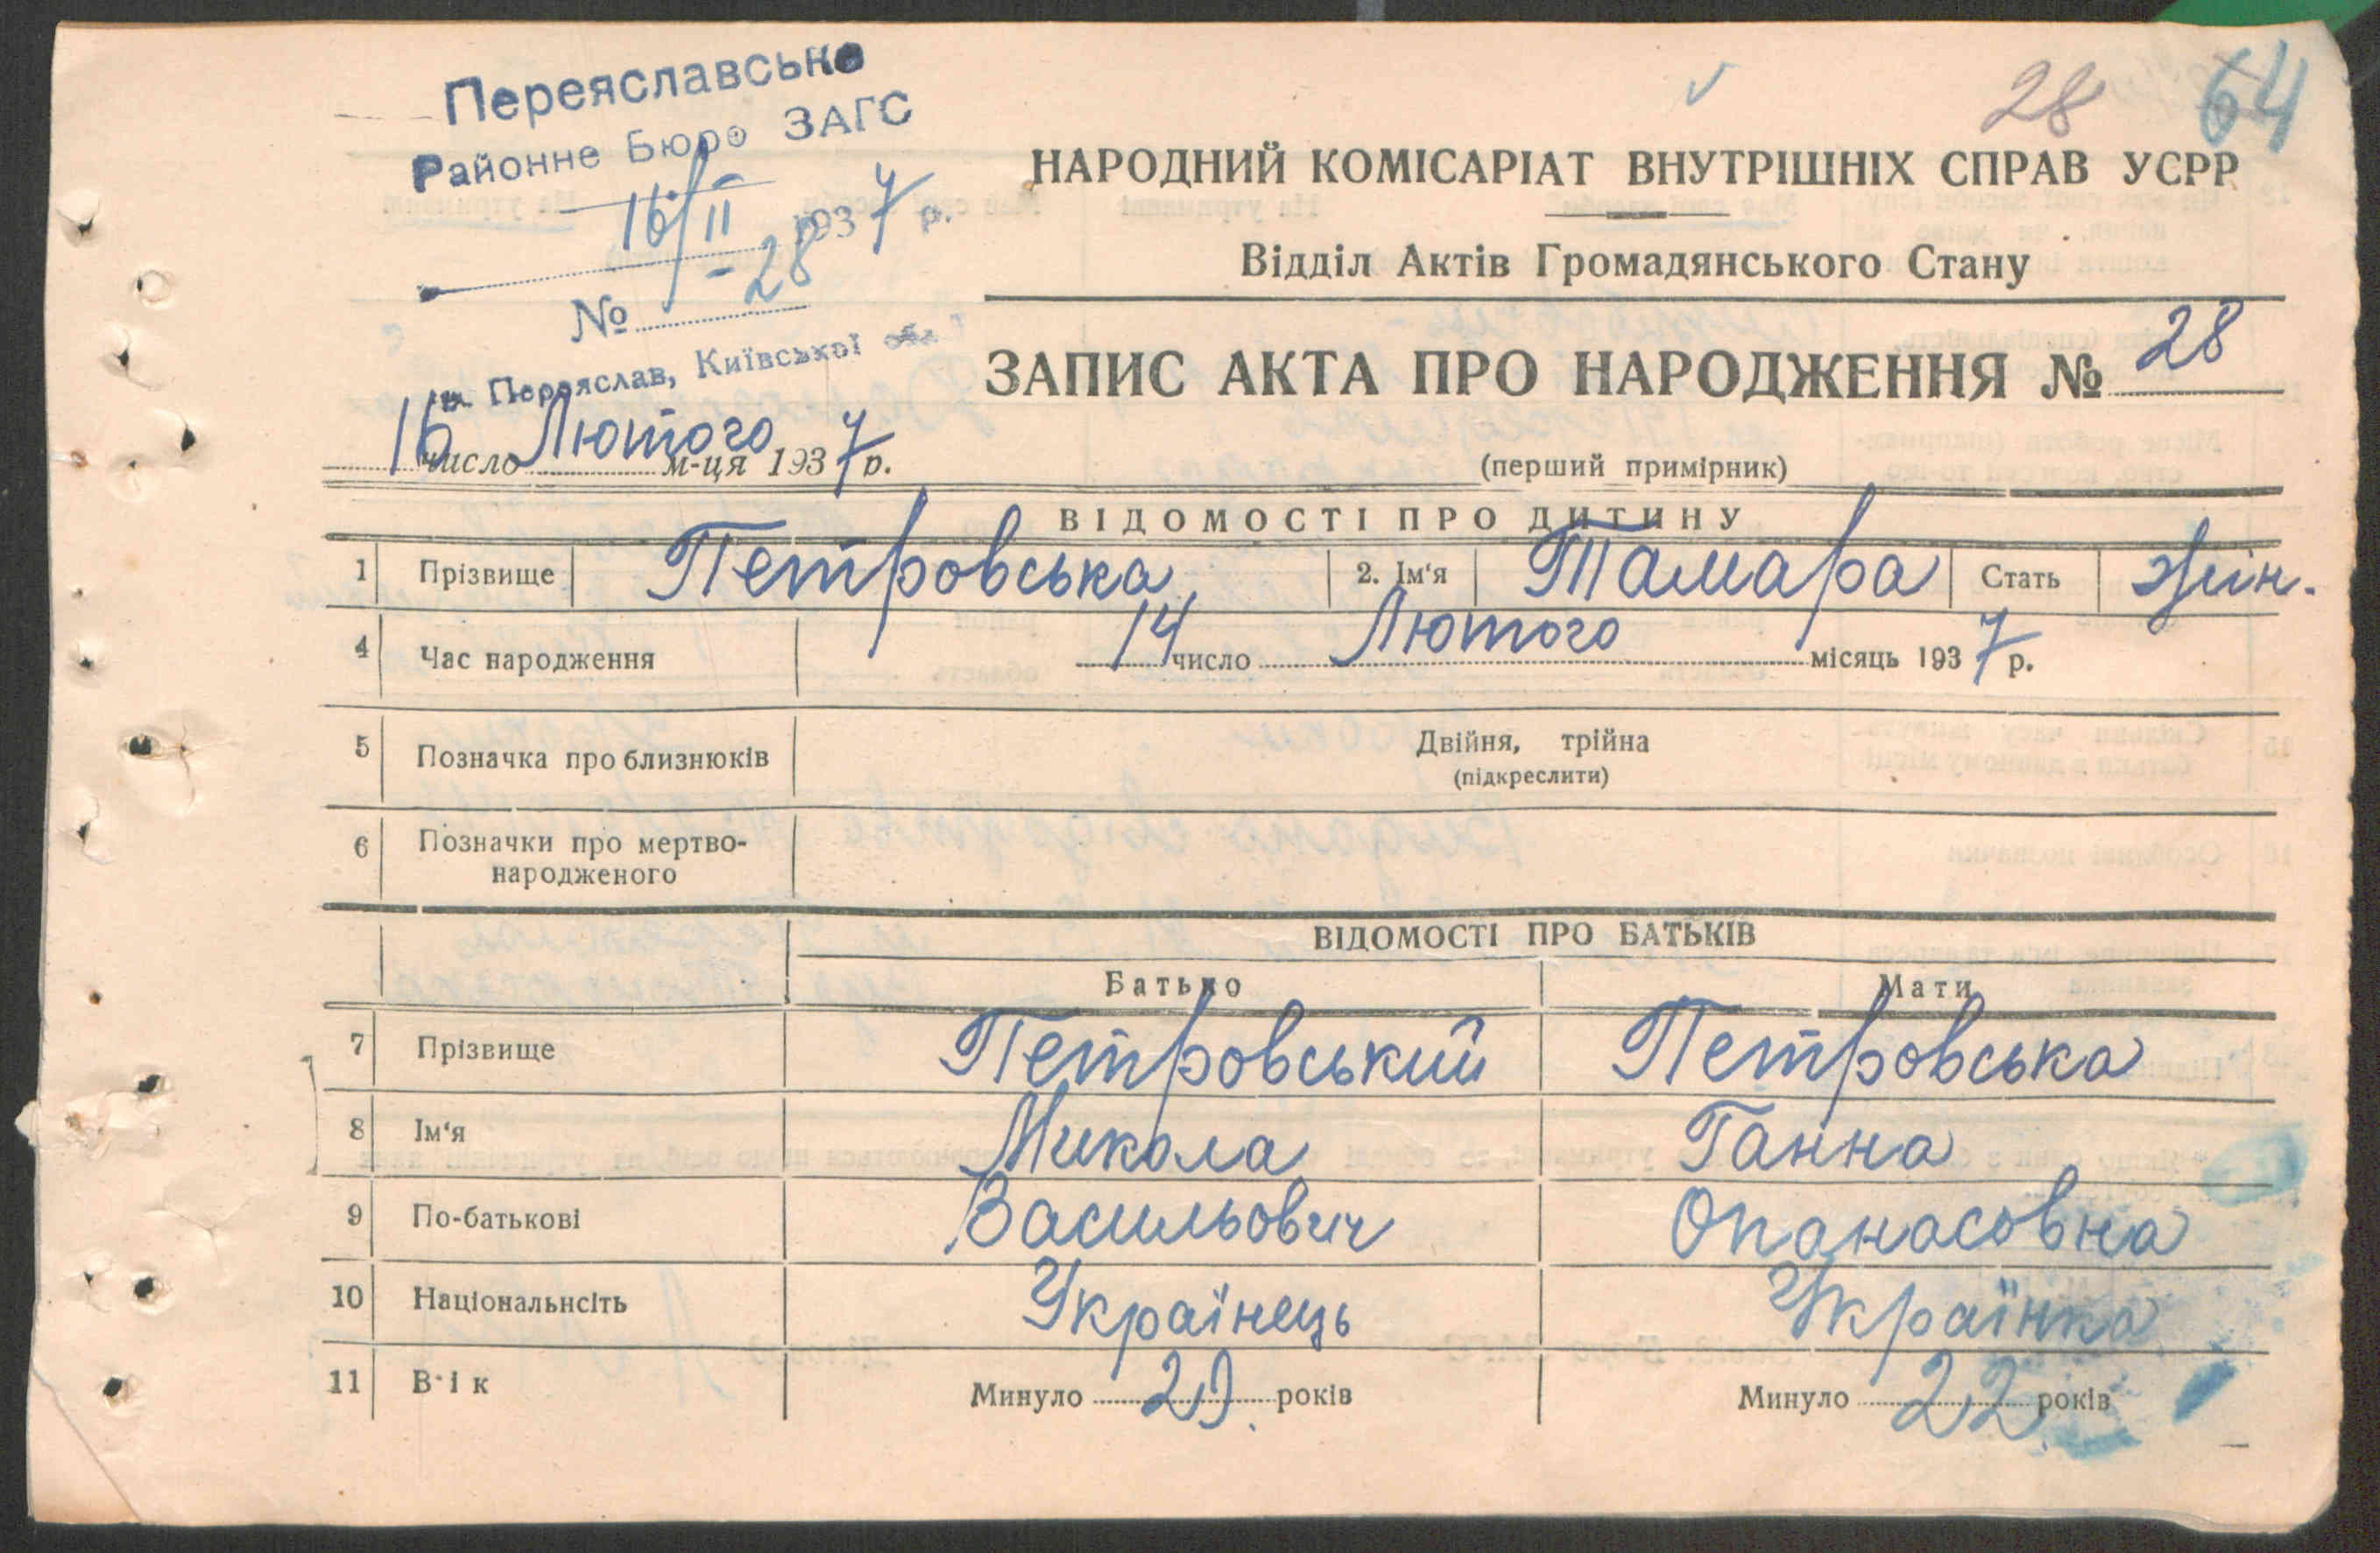 Переяславське
Районне Бюро ЗАГС
16/II 1937 р.
№ -28
м. Переяслав, Київської обл.
28 64
НАРОДНИЙ КОМІСАРІАТ ВНУТРІШНІХ СПРАВ УСРР
Відділ Актів Громадянського Стану
ЗАПИС АКТА ПРО НАРОДЖЕННЯ № 28
16 число Лютого м-ця 1937 р.
(перший примірник)
ВІДОМОСТІ ПРО ДИТИНУ
1 Прізвище Петровська 2. Ім'я Тамара Стать жін.
4 Час народження 14 число Лютого місяць 1937 р.
5 Позначка про близнюків Двійня, трійна
(підкреслити)
6 Позначки про мертво-
народженого
ВІДОМОСТІ ПРО БАТЬКІВ
Батько Мати
7 Прізвище Петровський Петровська
8 Ім'я Микола Ганна
9 По-батькові Васильович Опанасовна
10 Національнсіть Українець Українка
11 Вік Минуло 29. років Минуло 22 років